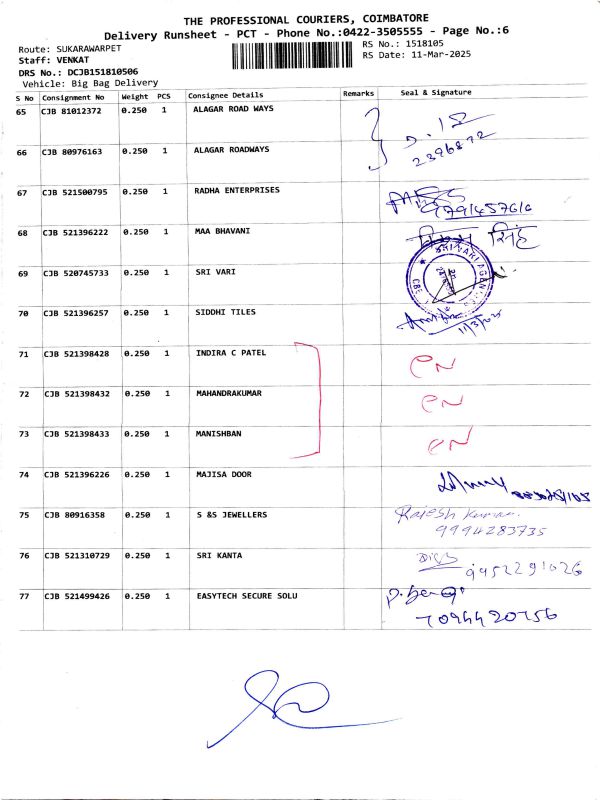 THE PROFESSIONAL COURIERS, COIMBATORE
Delivery Runsheet - PCT - Phone No.:0422-3505555 - Page No.:6
Route: SUKARAWARPET
RS No.: 1518105
Staff: VENKAT
RS Date: 11-Mar-2025
DRS No.: DCJB151810506
Vehicle: Big Bag Delivery
S No Consignment No Weight PCS Consignee Details Remarks Seal & Signature
65 CJB 81012372 0.250 1 ALAGAR ROAD WAYS
66 CJB 80976163 0.250 1 ALAGAR ROADWAYS
2396872
67 CJB 521500795 0.250 1 RADHA ENTERPRISES
68 CJB 521396222 0.250 1 MAA BHAVANI सिंह
69 CJB 520745733 0.250 1 SRI VARI
SRI VARI AGENCIES
CBE
70 CJB 521396257 0.250 1 SIDDHI TILES
11/3/25
71 CJB 521398428 0.250 1 INDIRA C PATEL CN
72 CJB 521398432 0.250 1 MAHANDRAKUMAR CN
73 CJB 521398433 0.250 1 MANISHBAN CN
74 CJB 521396226 0.250 1 MAJISA DOOR
75 CJB 80916358 0.250 1 S &S JEWELLERS Rajesh Kumar
9994283735
76 CJB 521310729 0.250 1 SRI KANTA
9952291026
77 CJB 521499426 0.250 1 EASYTECH SECURE SOLU
7094420756